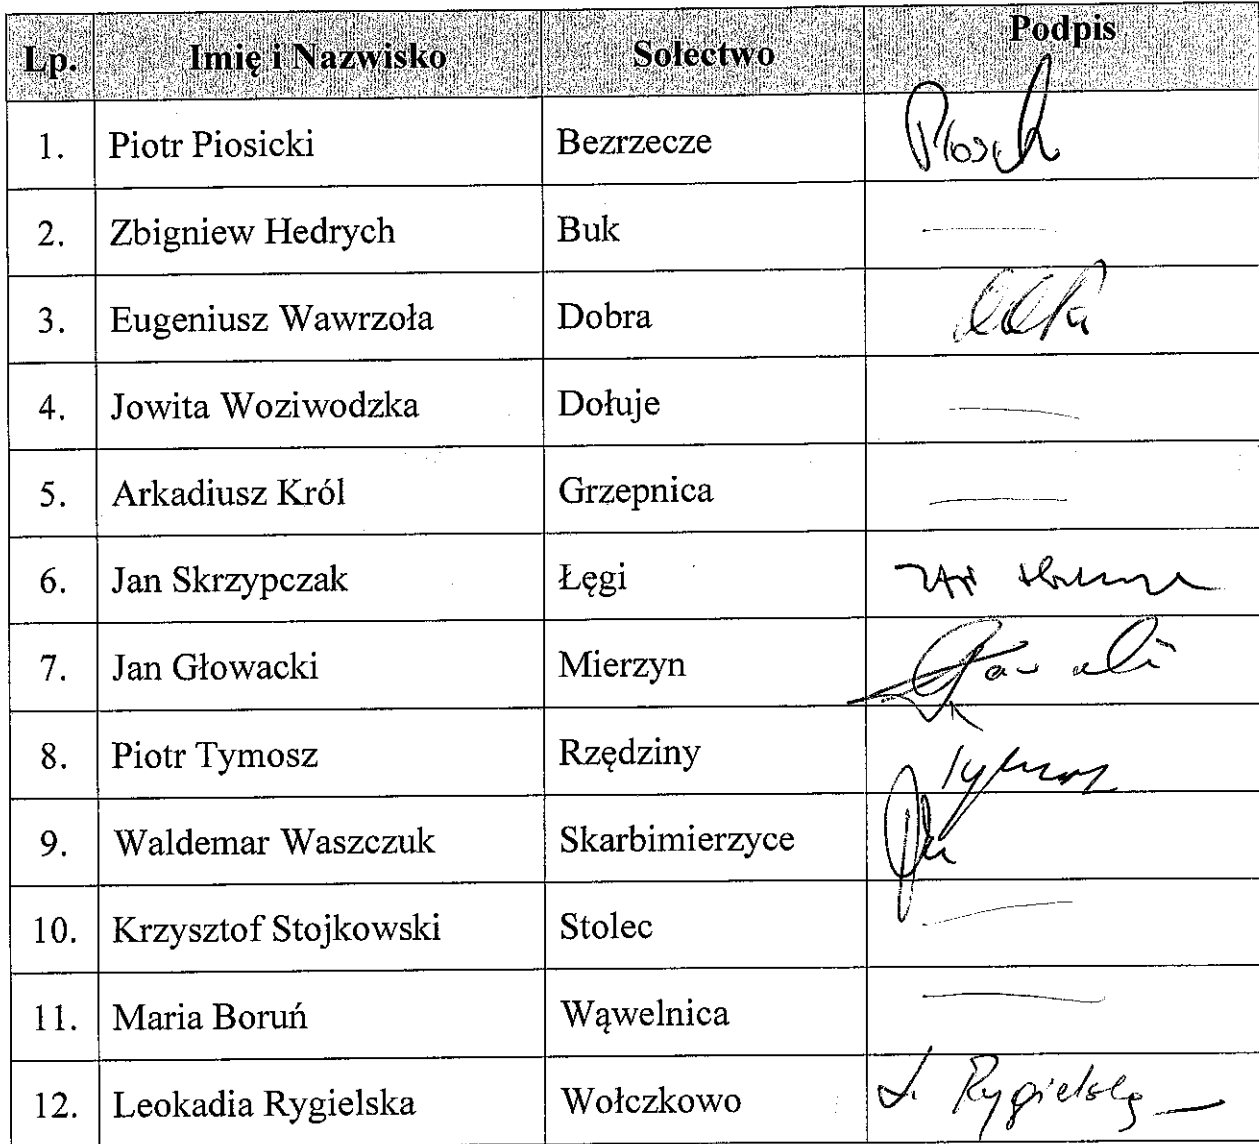 Lp. Imię i Nazwisko Sołectwo Podpis
1. Piotr Piosicki Bezrzecze
2. Zbigniew Hedrych Buk —
3. Eugeniusz Wawrzoła Dobra
4. Jowita Woziwodzka Dołuje —
5. Arkadiusz Król Grzepnica —
6. Jan Skrzypczak Łęgi
7. Jan Głowacki Mierzyn
8. Piotr Tymosz Rzędziny Tymosz
9. Waldemar Waszczuk Skarbimierzyce
10. Krzysztof Stojkowski Stolec —
11. Maria Boruń Wąwelnica —
12. Leokadia Rygielska Wołczkowo L. Rygielska